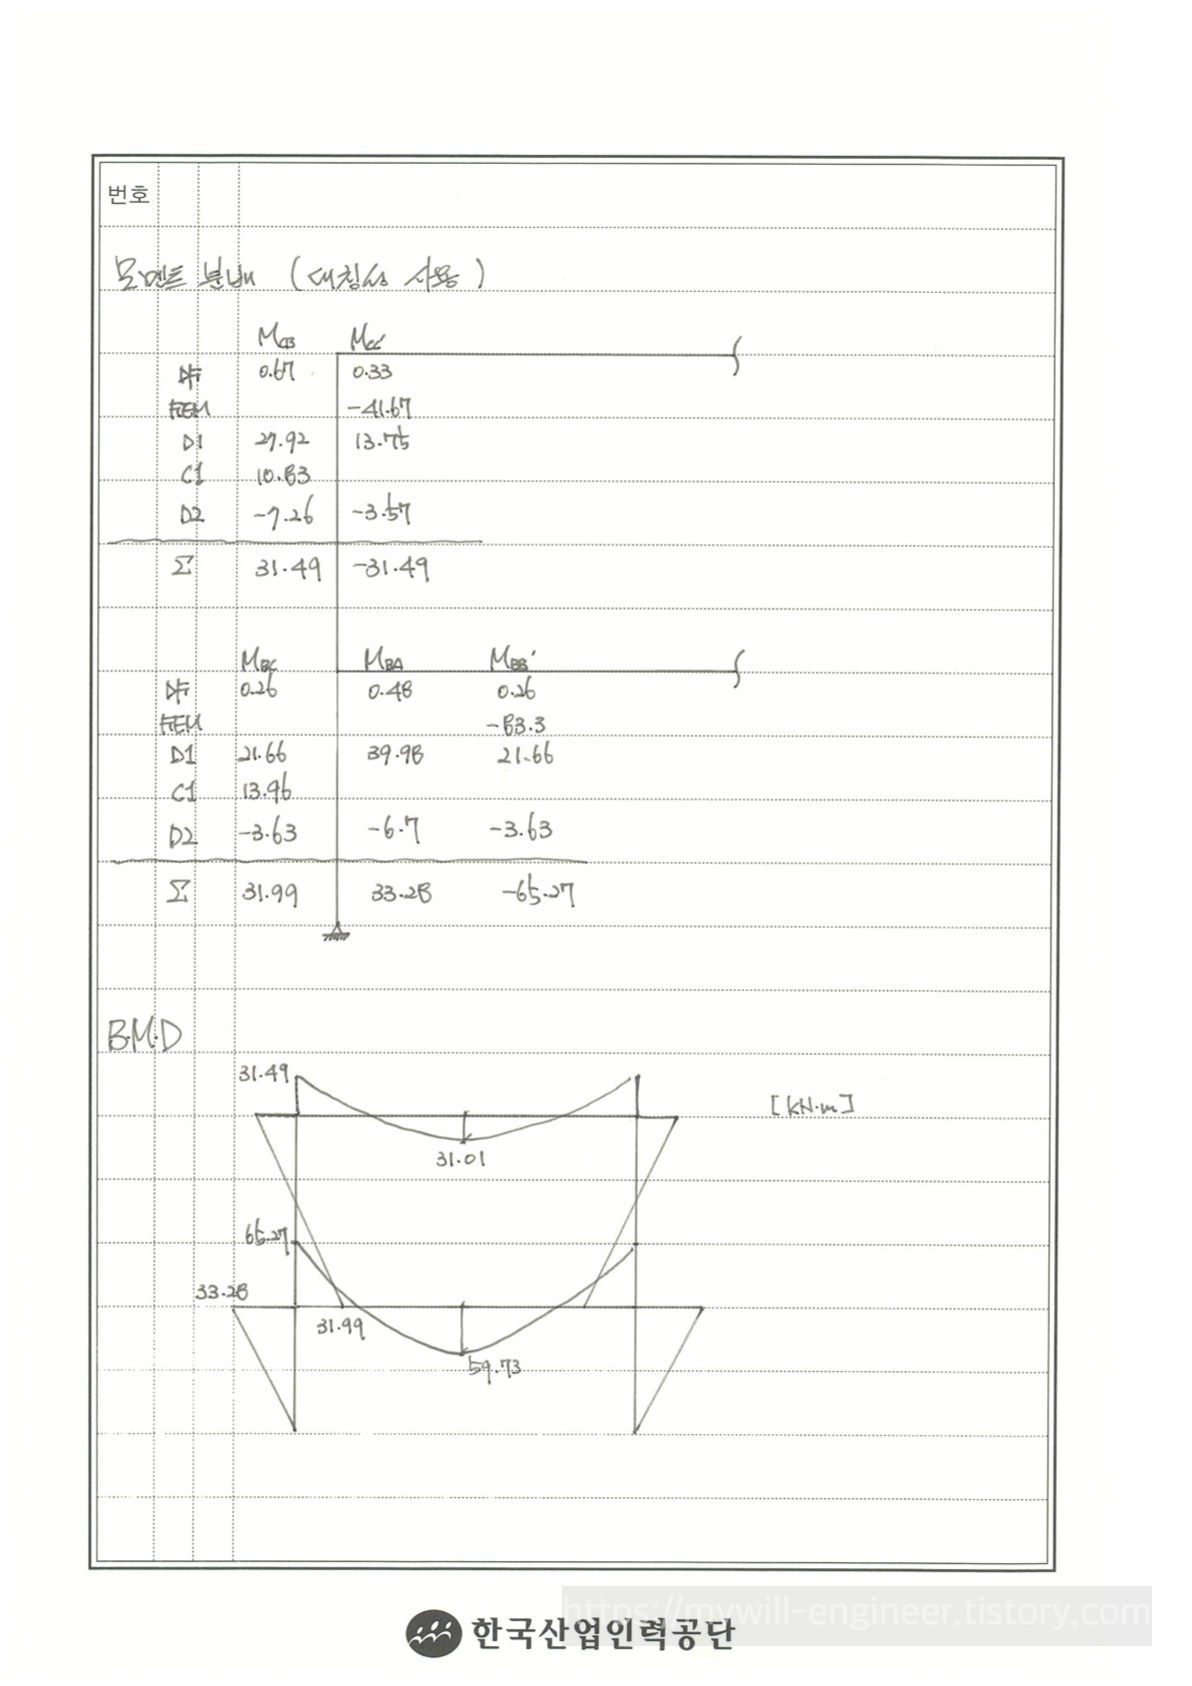 번호
모멘트 분배 (대칭성 사용)
M_CB M_CC'
DF 0.67 0.33
FEM -41.67
D1 27.92 13.75
C1 10.83
D2 -7.26 -3.57
Σ 31.49 -31.49
M_BC M_BA M_BB'
DF 0.26 0.48 0.26
FEM -83.3
D1 21.66 39.98 21.66
C1 13.96
D2 -3.63 -6.7 -3.63
Σ 31.99 33.28 -65.27
B.M.D
31.49
[kN·m]
31.01
65.27
33.28
31.99
59.73
https://mywill-engineer.tistory.com
한국산업인력공단